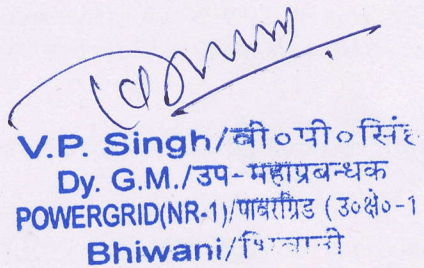 V.P. Singh/बी०पी०सिंह
Dy. G.M./उप-महाप्रबन्धक
POWERGRID(NR-1)/पावरग्रिड (उ०क्षे०-1
Bhiwani/भिवानी